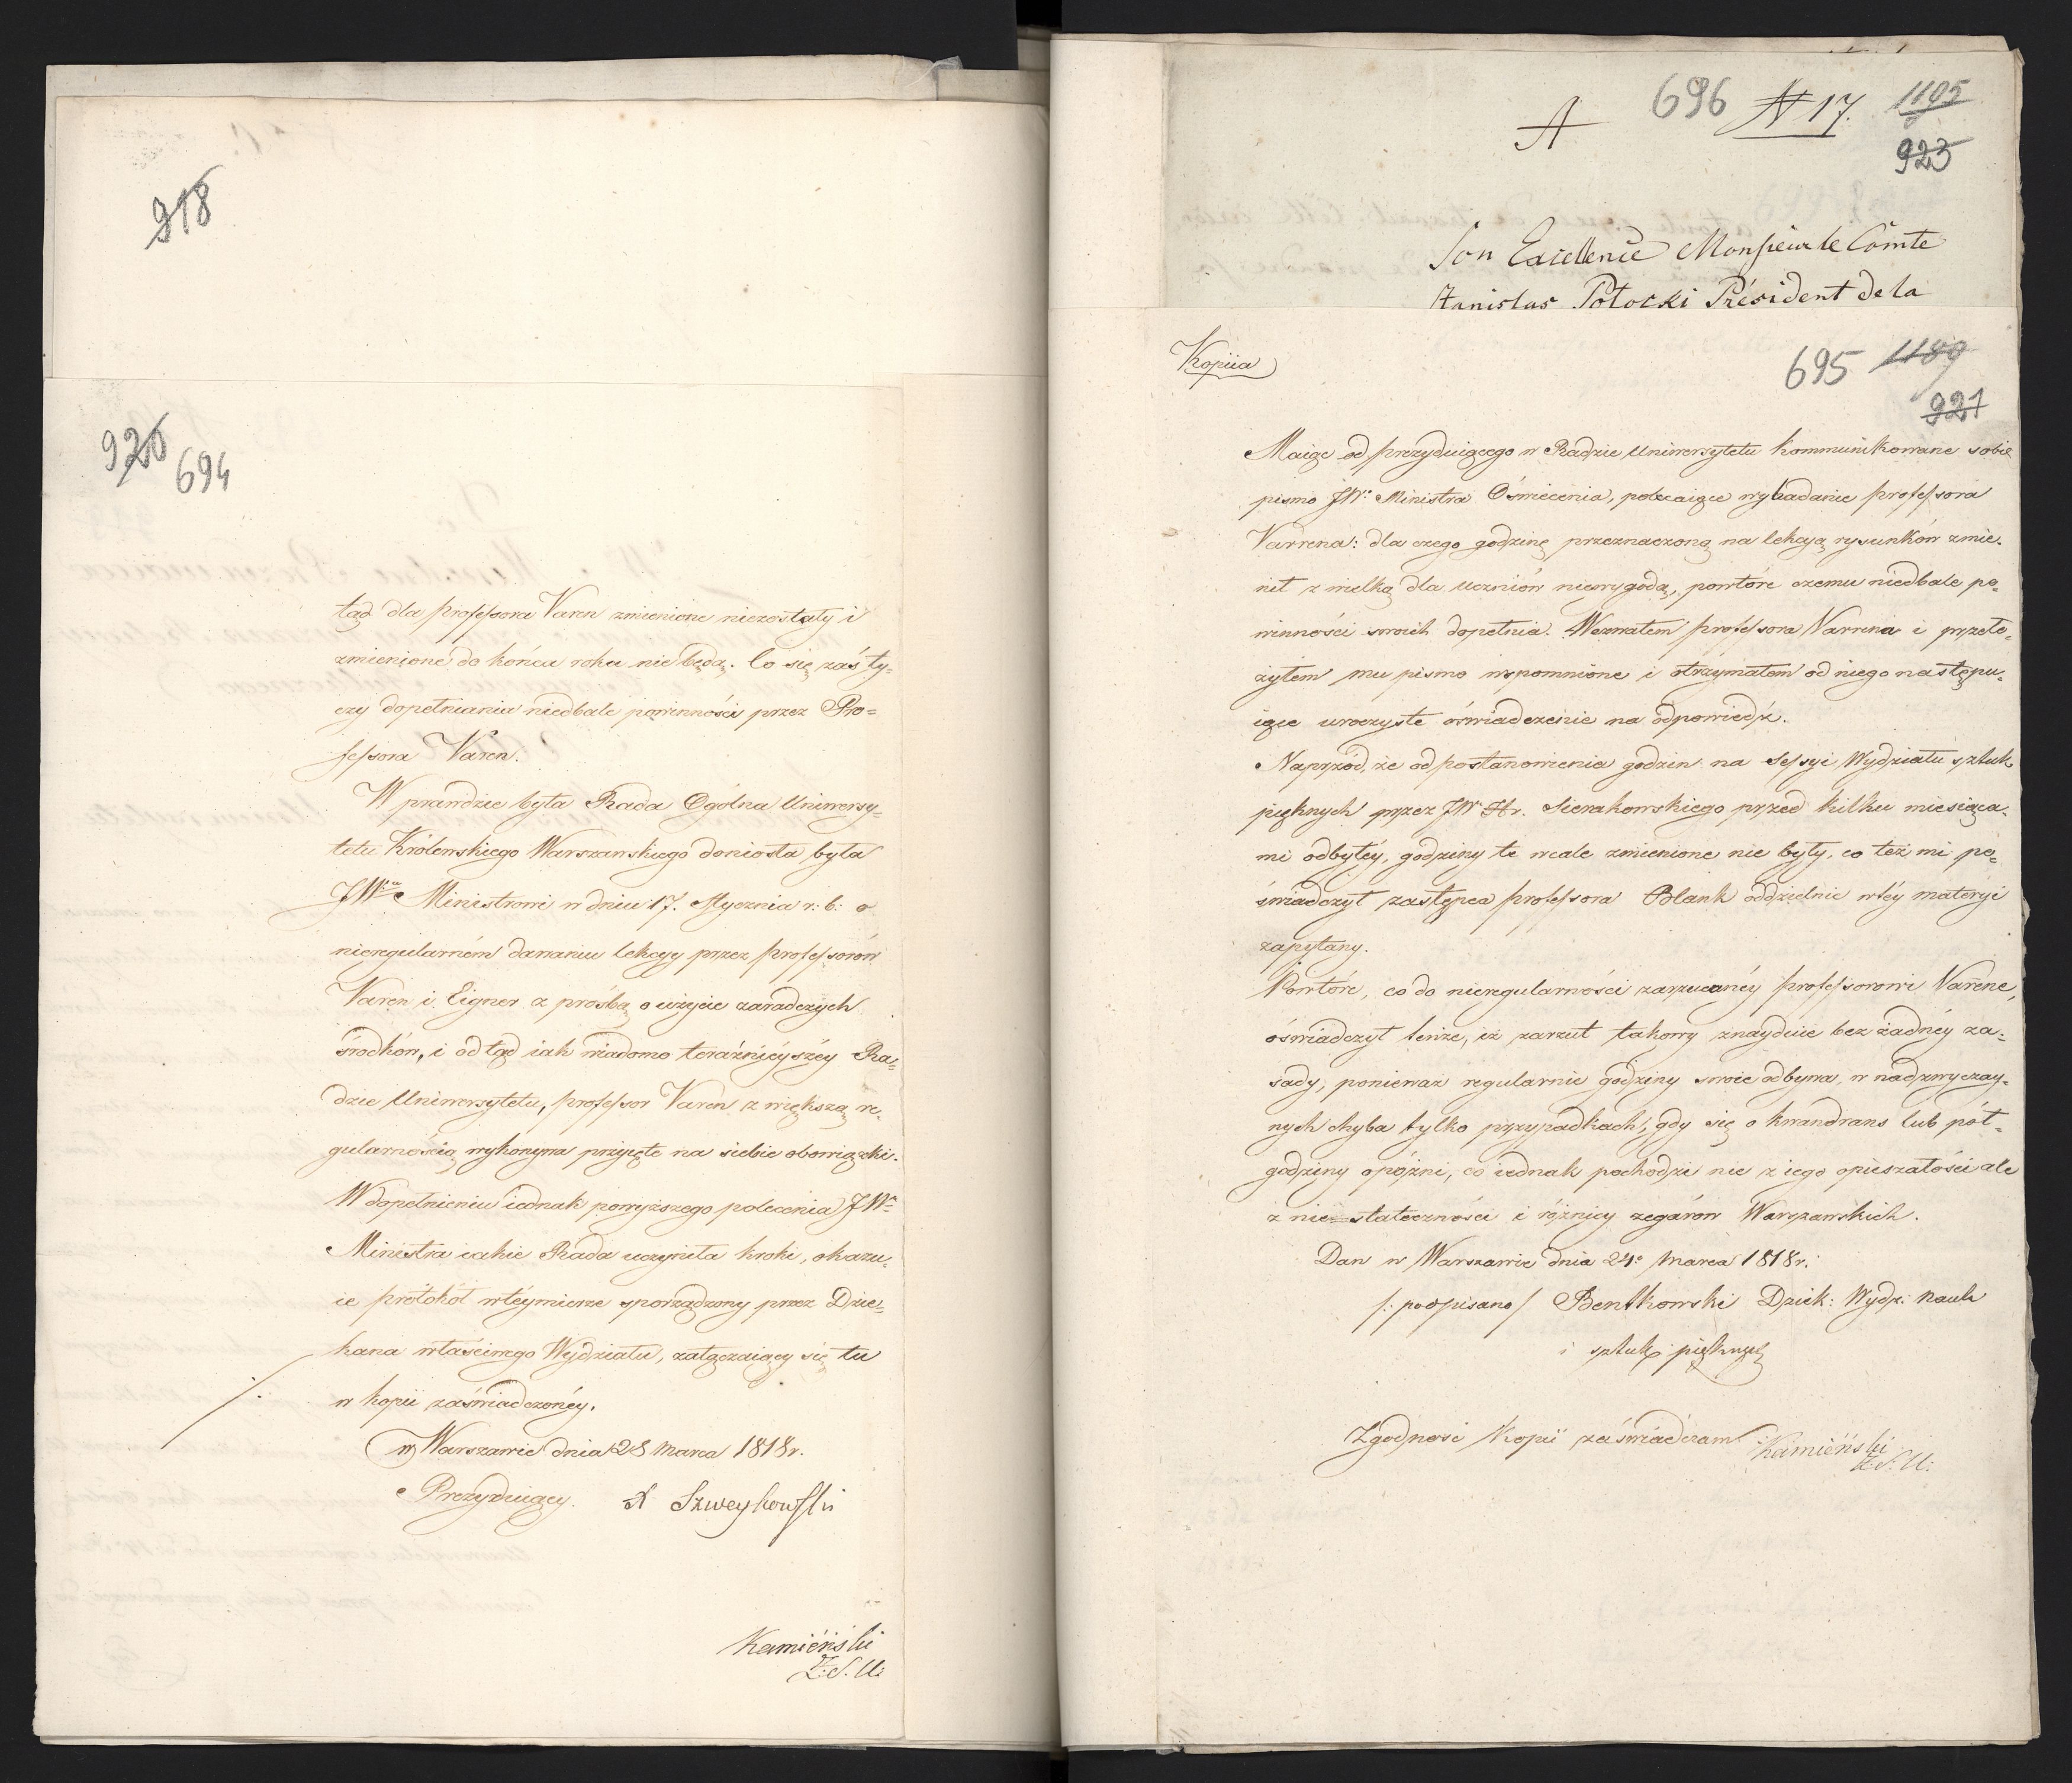 918
920
694
tąd dla professora Varen zmienione niezostały i
zmienione do końca roku nie będą. Co się zaś ty=
czy dopełniania niedbale powinności przez Pro=
fessora Varen.
W prawdzie była Rada Ogólna Uniwersy=
tetu Królewskiego Warszawskiego doniosła była
JW Ministrowi w dniu 17. Stycznia r: b: o
nieregularném dawaniu lekcyy przez professorów
Varen i Eigner z prośbą o użycie zaradczych
środków, i odtąd iak wiadomo teraźnieyszéy Ra=
dzie Uniwersytetu, professor Varen z większą re=
gularnością wykonywa przyięte na siebie obowiązki.
W dopełnieniu iednak powyższego polecenia JW
Ministra iakie Rada uczyniła kroki, okazu=
ie protokół wtéymierze sporządzony przez Dzie=
kana właściwego Wydziału, załączaiący się tu
w kopii zaświadczonéy.
w Warszawie dnia 28 Marca 1818 r.
Prezyduiący. A Szweykowski
Kamieński
Z. S. U:
A 696 N 17. 1195
923
Son Excellence Monsieur le Comte
Stanislas Potocki Président de la
Kopiia
695 1189
921
Maiąc od prezyduiącego w Radzie Uniwersytetu kommunikowane sobie
pismo JW. Ministra Oświecenia, polecaiące wybadanie professora
Varrena: dla czego godzinę przeznaczoną na lekcyą rysunków zmie=
nił z wielką dla uczniów niewygodą, powtóre czemu niedbale po=
winności swoich dopełnia. Wezwałem professora Varrena i przeło=
żyłem mu pismo wspomnione i otrzymałem od niego następu=
iące uroczyste oświadczenie na odpowiedź.
Naprzód, że od postanowienia godzin na sessyi Wydziału sztuk
pięknych przez JW Hr. Sierakowskiego przed kilku miesiąca=
mi odbytéy, godziny te wcale zmienione nie były, co też mi po=
świadczył zastępca professora Blank oddzielnie wtéy materyi
zapytany.
Powtóre, co do nieregularności zarzucanéy professorowi Varene,
oświadczył tenże, iż zarzut takowy znayduie bez żadnéy za=
sady, ponieważ regularnie godziny swoie odbywa, w nadzwyczay=
nych chyba tylko przypadkach, gdy się o kwandrans lub pół=
godziny opóźni, co iednak pochodzi nie z iego opieszałości ale
z nie=stateczności i różnicy zegarów Warszawskich.
Dan w Warszawie dnia 24° Marca 1818 r.
/: podpisano / Bentkowski Dziek: Wydz: nauk
i sztuk pięknych
Zgodność Kopii zaświadczam Kamieński
Z. S. U: